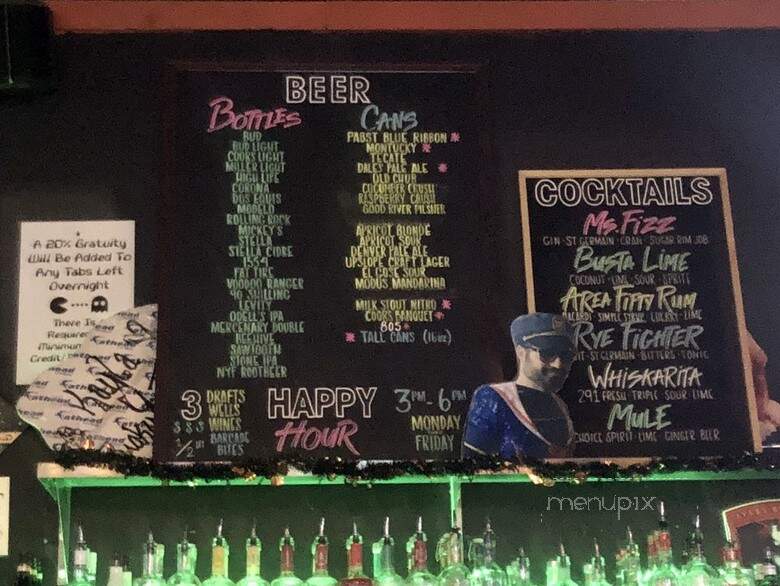 BEER
BOTTLES
BUD
BUD LIGHT
COORS LIGHT
MILLER LIGHT
HIGH LIFE
CORONA
DOS EQUIS
MODELO
ROLLING ROCK
MICKEY'S
STELLA
STELLA CIDRE
1554
FAT TIRE
VOODOO RANGER
90 SHILLING
LEVITY
ODELL'S IPA
MERCENARY DOUBLE
BEEHIVE
SAWTOOTH
STONE IPA
NYF ROOTBEER
CANS
PABST BLUE RIBBON *
MONTUCKY *
TECATE
DALE'S PALE ALE *
OLD CHUB
CUCUMBER CRUSH
RASPBERRY CRUSH
GOOD RIVER PILSNER
APRICOT BLONDE
APRICOT SOUR
DENVER PALE ALE
UPSLOPE CRAFT LAGER
EL GOSE SOUR
MODUS MANDARINA
MILK STOUT NITRO *
COORS BANQUET *
805 *
* TALL CANS (16oz)
3 DRAFTS
WELLS
$$3 WINES
1/2 BARCADE
BITES
HAPPY
HOUR
3PM-6PM
MONDAY
FRIDAY
COCKTAILS
Ms. FIZZ
GIN·ST GERMAIN·CRAN·SUGAR RIM JOB
BUSTA LIME
COCONUT·LIME·SOUR·SPRITE
AREA FIFTY RUM
BACARDI·SIMPLE SYRUP·
RYE FIGHTER
ST-GERMAIN·BITTERS·TONIC
WHISKARITA
291 FRESH·TRIPLE·SOUR·LIME
MULE
CHOICE SPIRIT·LIME·GINGER BEER
A 20% Gratuity
Will Be Added To
Any Tabs Left
Overnight
There Is
Require
Minimum
Credit
Fathead
menupix